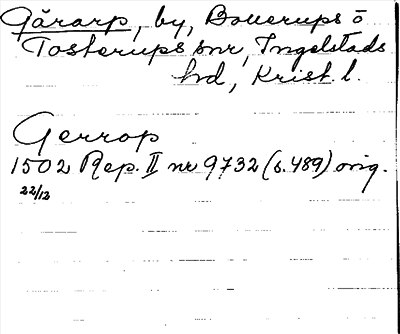 Gärarp, by, Bollerups o
Tosterups snr, Ingelstads
hd, Krist. l.
Gerrop
1502 Rep. II nr 9732 (s. 489) orig.
22/12